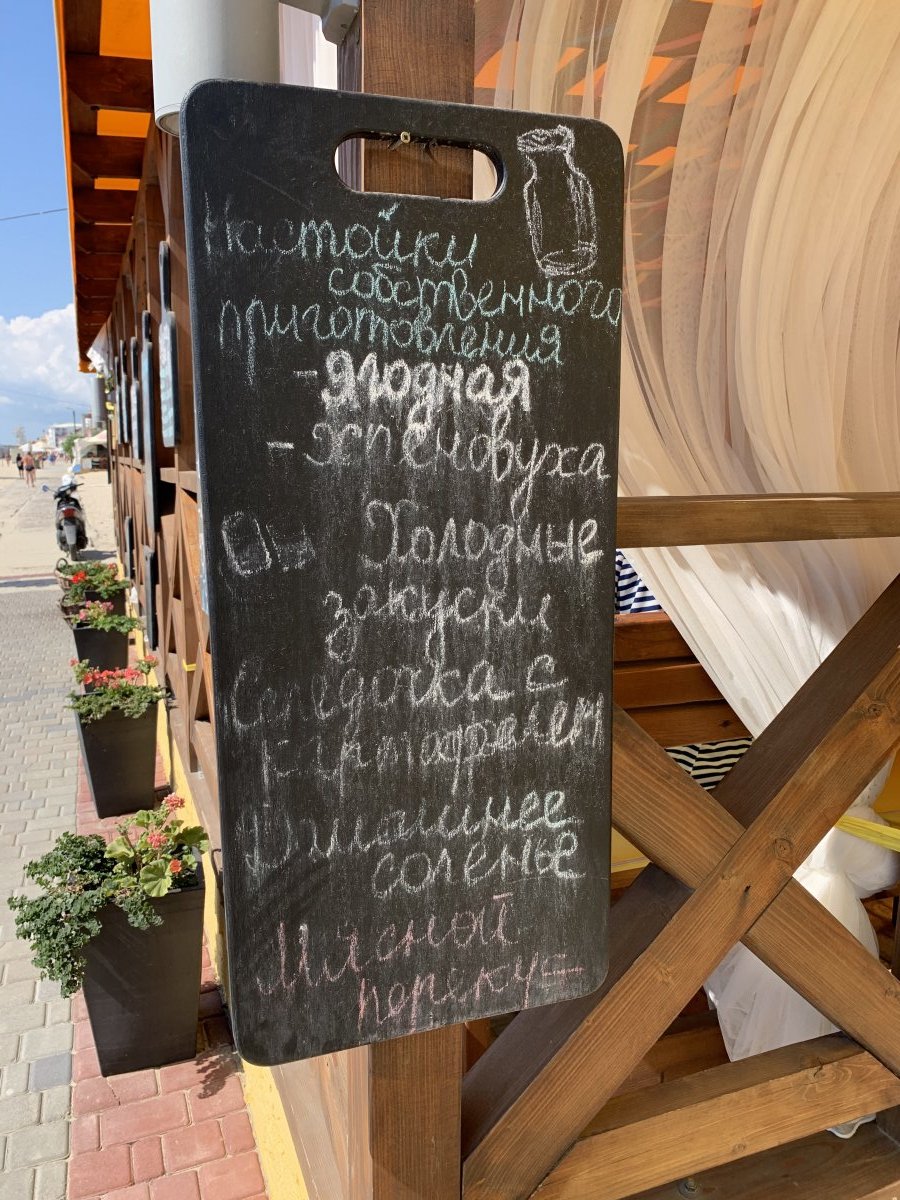 Настойки
собственного
приготовления
- Ягодная
- Хреновуха
Холодные
закуски
Селедочка с
картофелем
Домашнее
соленье
Мясной
перекус